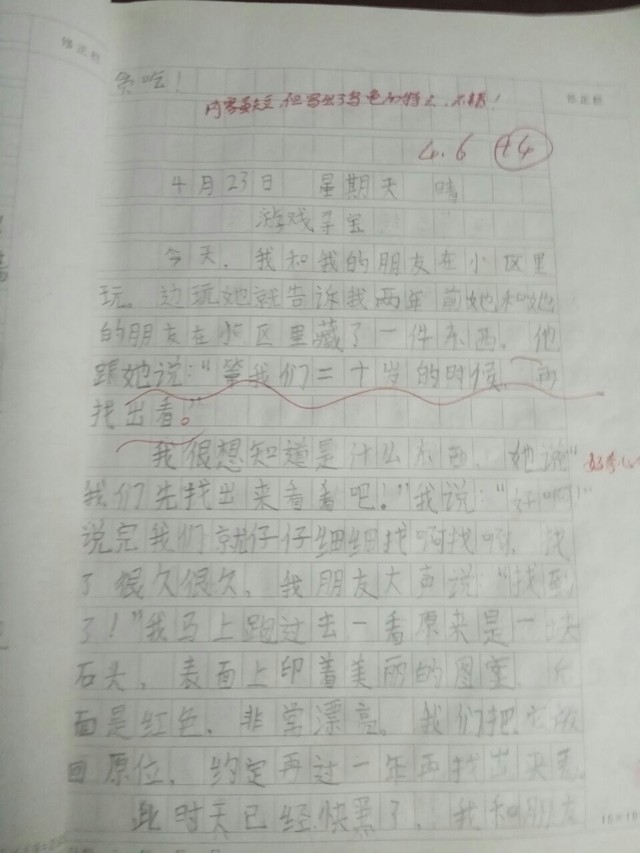 修正栏
贪吃！
修正栏
内容虽短，但写出了角色的特点，不错！
4.6 +4
4月23日 星期天 晴
游戏寻宝
今天，我和我的朋友在小区里
玩。边玩她就告诉我两年前她和她
的朋友在小区里藏了一件东西。他
跟她说：“等我们二十岁的时候，再
找出看。”
我很想知道是什么东西，她说“
我们先找出来看看吧！”我说：“好啊”
说完我们就仔仔细细找啊找啊，找
了很久很久，我朋友大声说：“找到
了！”我马上跑过去一看原来是一块
石头，表面上印着美丽的图案，
面是红色，非常漂亮。我们把它放
回原位，约定再过一年再找出来看。
此时天已经快黑了，我和朋友